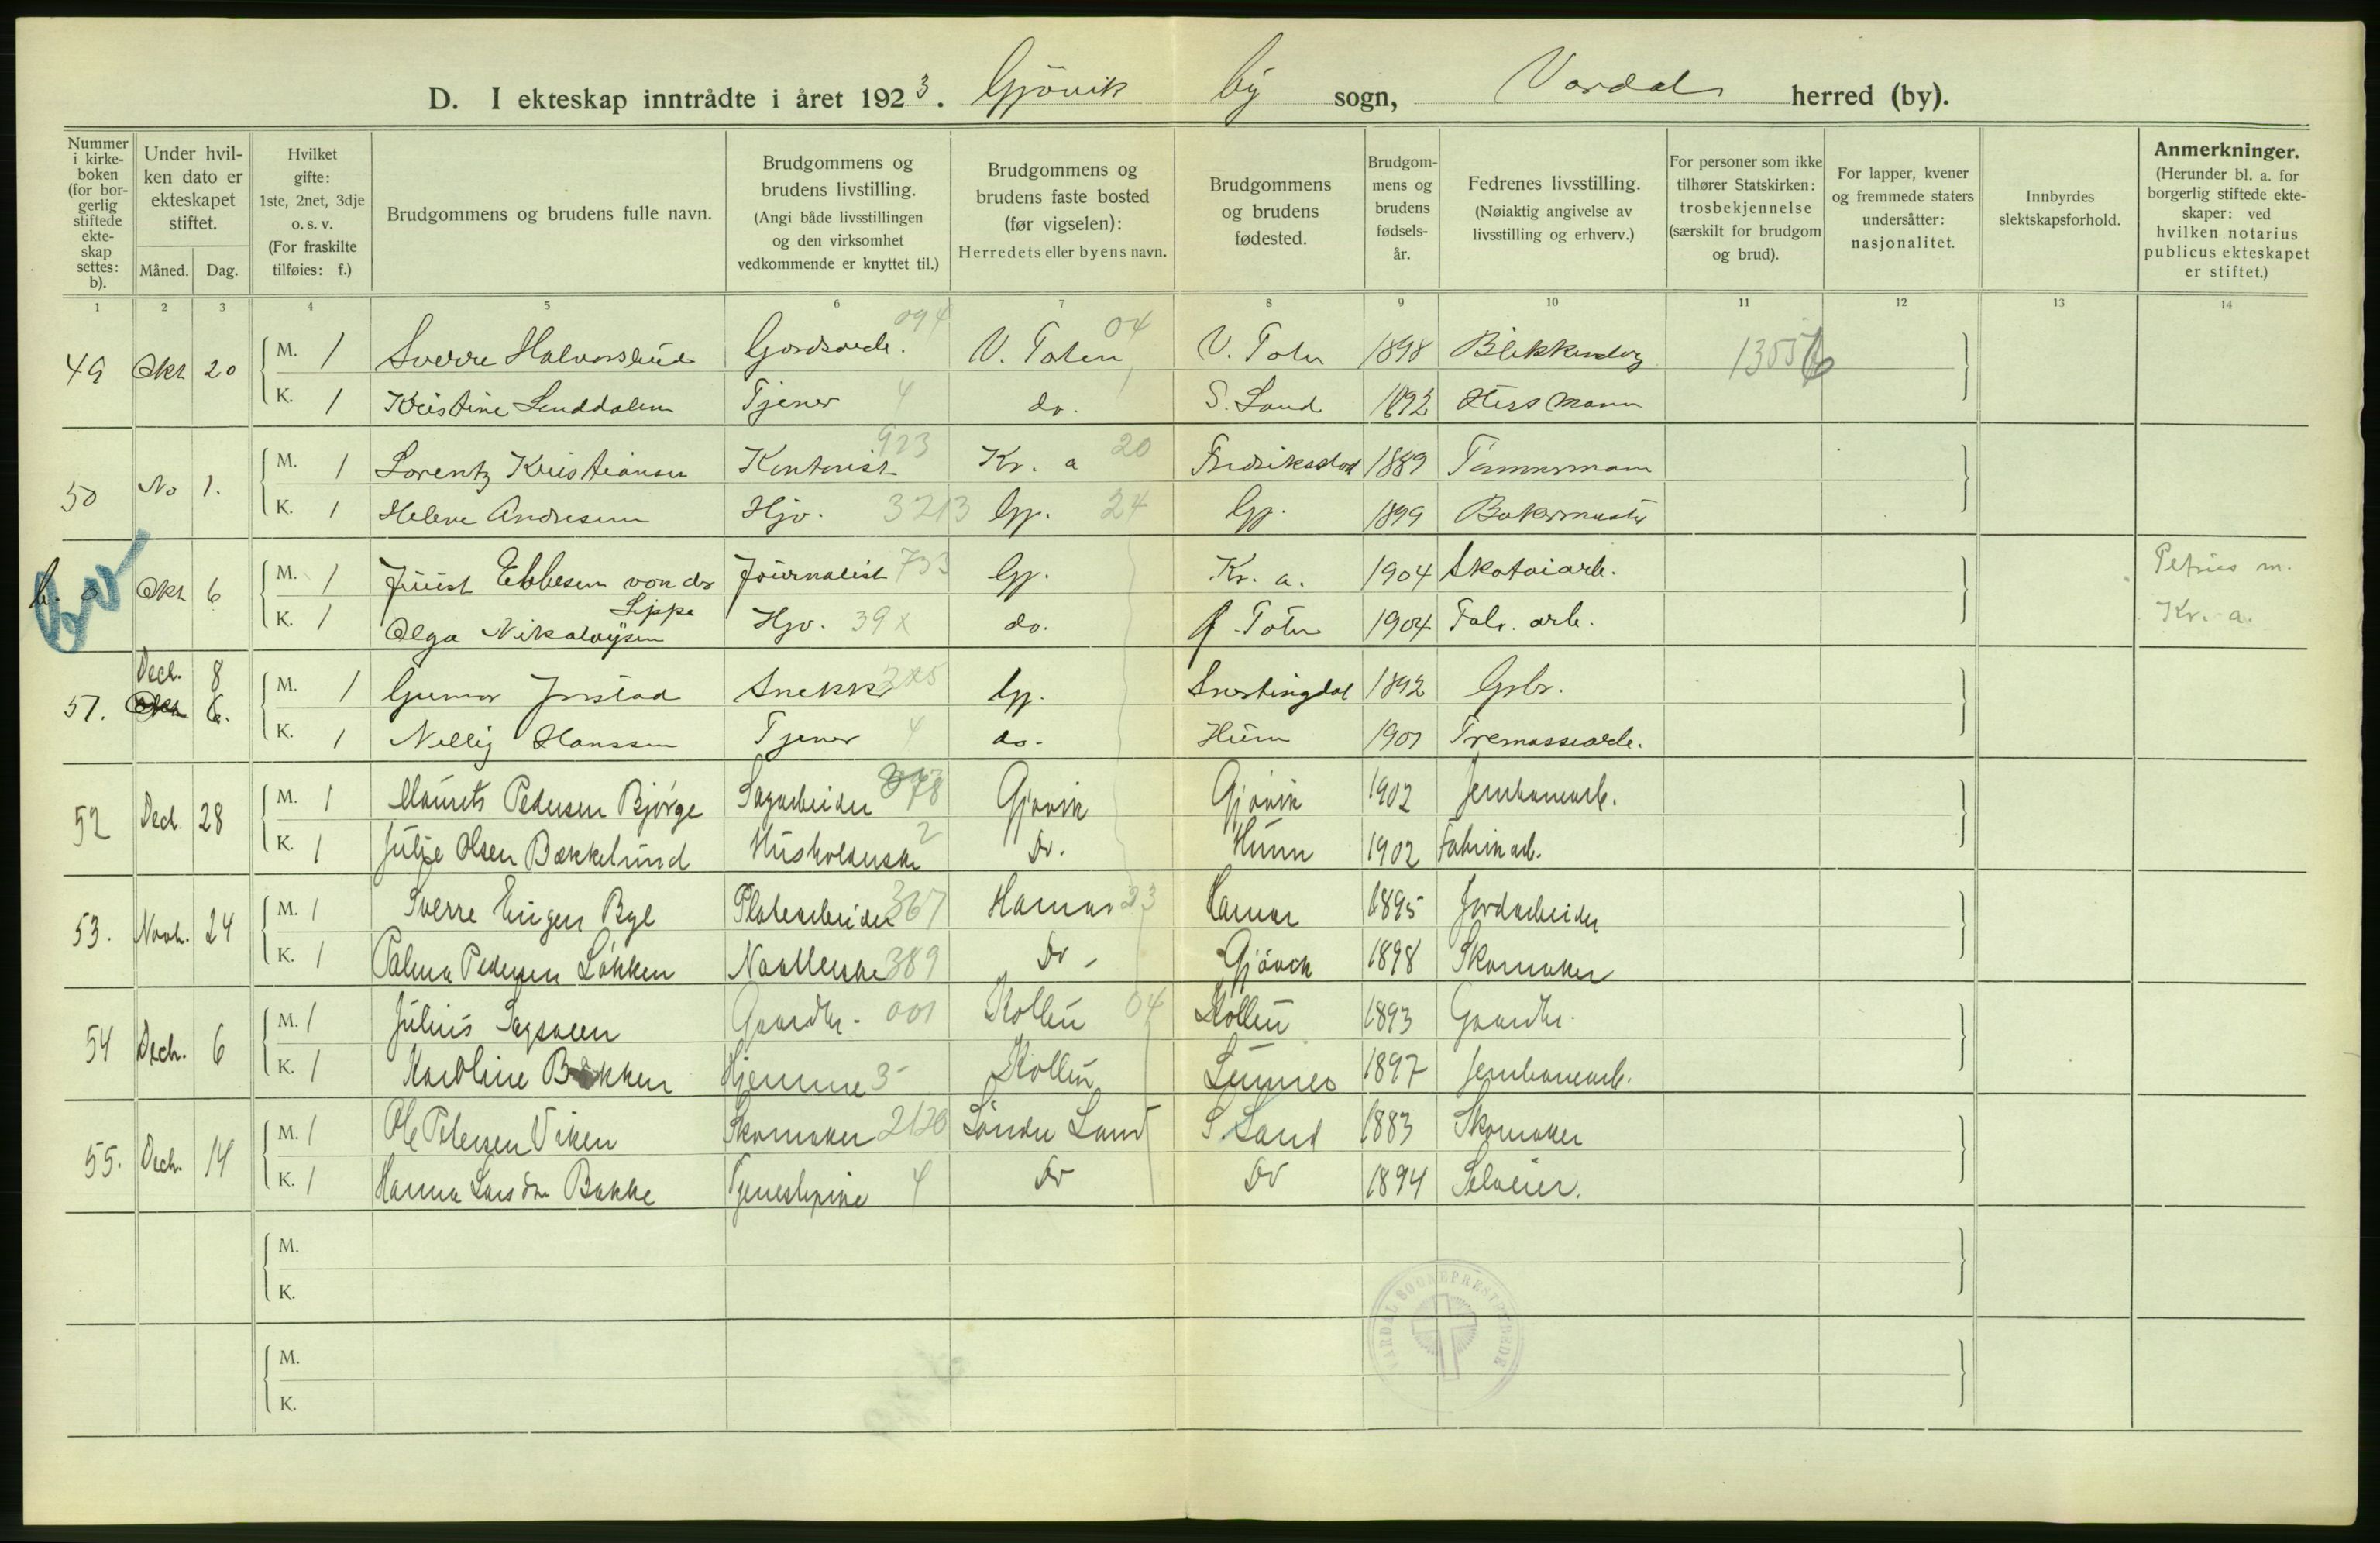 D. I ekteskap inntrådte i året 1923. Gjøvik by sogn, Vardal herred (by).
Nummer i kirkeboken (for borgerlig stiftede ekteskap settes: b).
Under hvilken dato er ekteskapet stiftet.
Måned. Dag.
Hvilket gifte: 1ste, 2net, 3dje o. s. v. (For fraskilte tilføies: f.)
Brudgommens og brudens fulle navn.
Brudgommens og brudens livstilling. (Angi både livsstillingen og den virksomhet vedkommende er knyttet til.)
Brudgommens og brudens faste bosted (før vigselen): Herredets eller byens navn.
Brudgommens og brudens fødested.
Brudgommens og brudens fødselsår.
Fedrenes livsstilling. (Nøiaktig angivelse av livsstilling og erhverv.)
For personer som ikke tilhører Statskirken: trosbekjennelse (særskilt for brudgom og brud).
For lapper, kvener og fremmede staters undersåtter: nasjonalitet.
Innbyrdes slektskapsforhold.
Anmerkninger. (Herunder bl. a. for borgerlig stiftede ekteskaper: ved hvilken notarius publicus ekteskapet er stiftet.)
1 2 3 4 5 6 7 8 9 10 11 12 13 14
49 Okt 20 M. 1 Sverre Halvorslund Gårdsarb. 094 V. Toten 04 V. Toten 1898 1355
K. 1 Kristine Linddalen Tjener 4 do. S. Land 1892 Husmann
50 No 1. M. 1 Lorentz Kristiansen Kontorist 923 Kr. a 20 Fredriksstad 1889 Tømmermann
K. 1 Helene Andresen Hjv. 3213 Gj. 24 Gj. 1899 Bakermester
b. Okt 6 M. 1 Juust Ebbesen von der Lippe Journalist 733 Gj. Kr. a. 1904 Skotøiarb. Petrus m.
K. 1 Olga Nikolaysen Hjv. 39x do. Ø. Toten 1904 Fabr. arb. Kr. a.
51. Dech. 8 Okt 6. M. 1 Gunnar Snekker 325 Gj. Snertingdal 1892 Grbr.
K. 1 Nelly Hanssen Tjener 4 do. Hunn 1901 Tremassearb.
52 Dech 28 M. 1 Maurits Pedersen Bjørge Sagarbeider 378 Gjøvik Gjøvik 1902 Jernbanearb.
K. 1 Julie Olsen Bækkelund Husholderske 2 Do. Hunn 1902 Fabrikarb.
53. Novb. 24 M. 1 Sverre Engen Bye Platearbeider 367 Hamar 23 Hamar 1895 Jordarbeider
K. 1 Palma Pedersen Løkken Naatlerske 389 Do - Gjøvik 1898 Skomaker
54 Dech. 6 M. 1 Julius Gaardbr. 001 Kolbu 04 Kolbu 1893 Gaardbr.
K. 1 Karoline Bakken Hjemme 3 Kolbu Lunner 1897 Jernbanearb.
55. Dech. 14 M. 1 Ole Petersen Viken Skomaker 2120 Søndre Land S. Land 1883 Skomaker
K. 1 Hanna Larsdtr Bakke Tjenestepike 4 Do Do 1894 Selveier.
M.
K.
M.
K.
VARDAL SOGNEPRESTEMBEDE